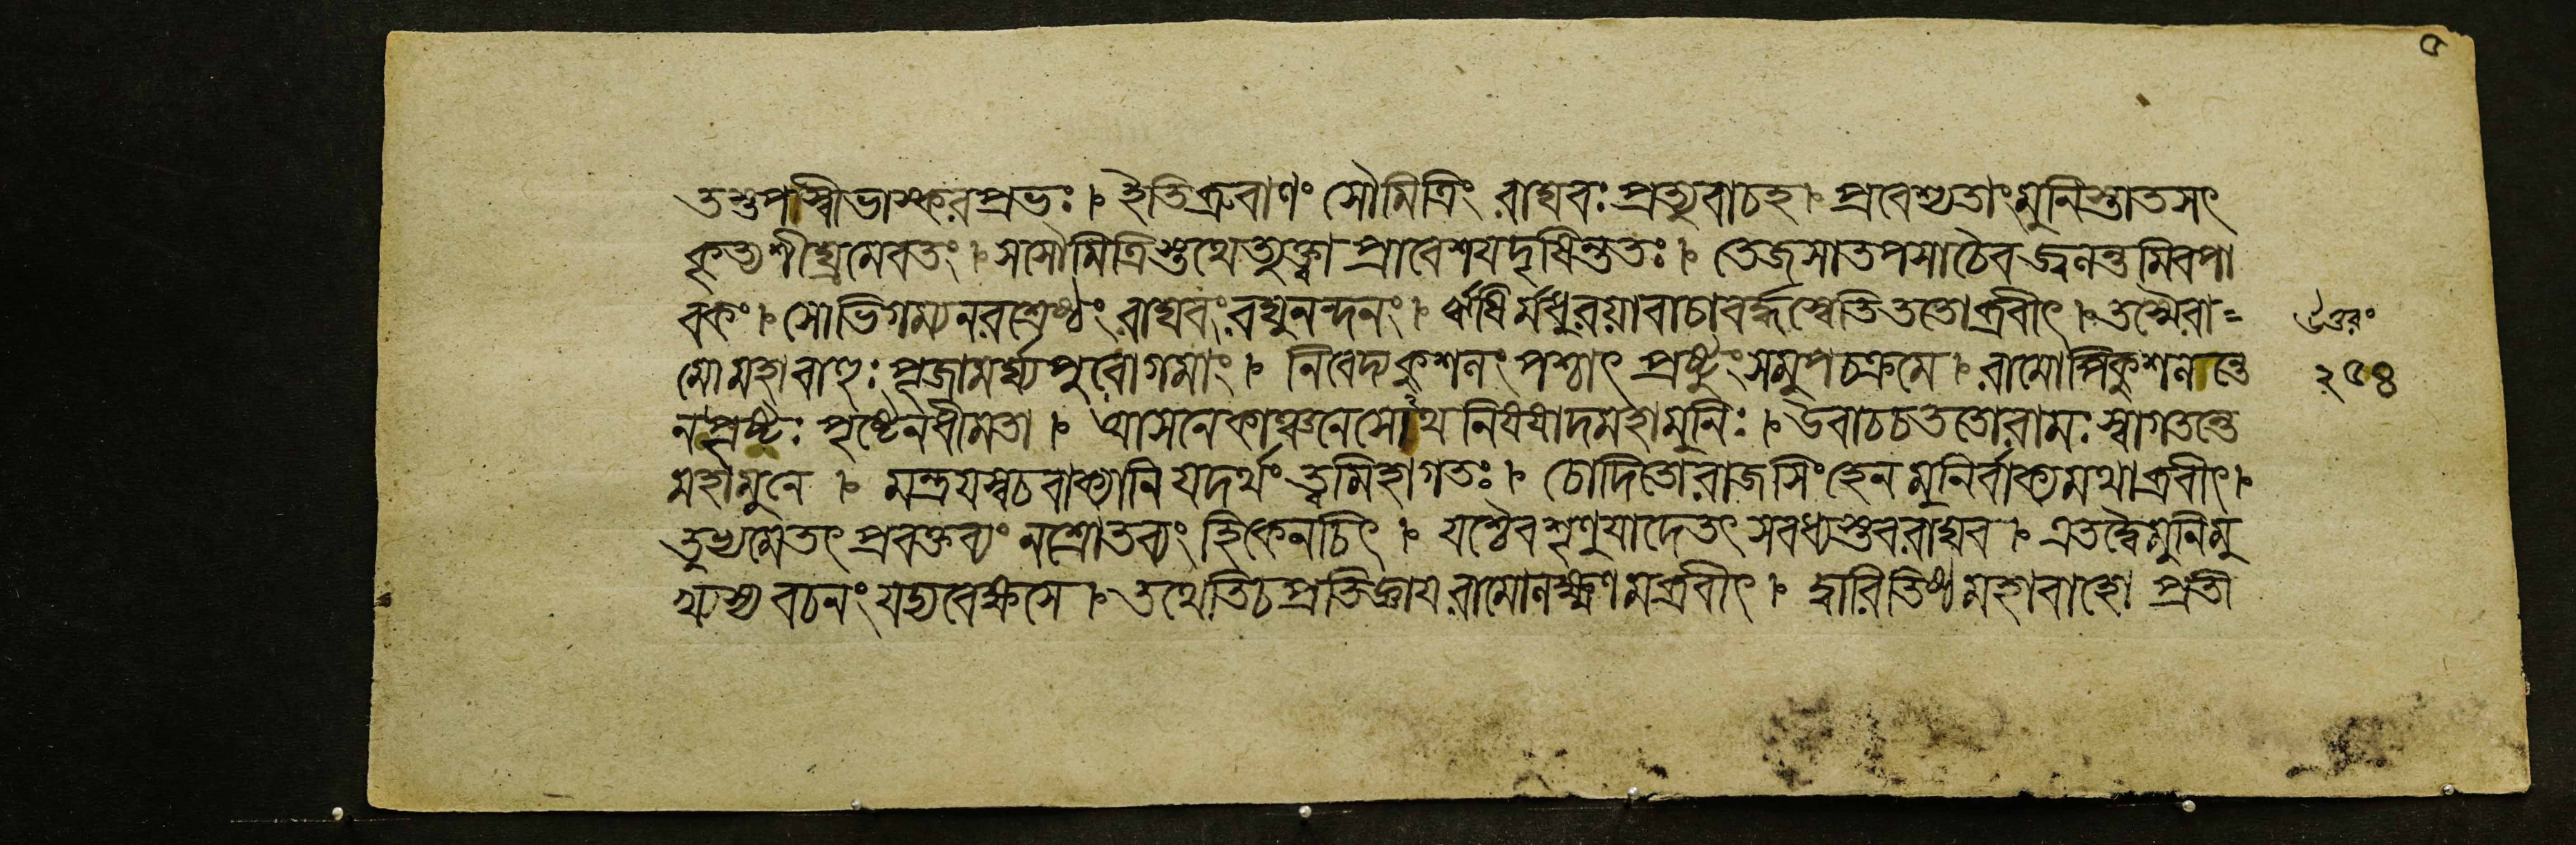 ৫
তস্তুপস্বীভাস্করপ্রভঃ। ইতিব্রুবাণং সৌমিত্রিং রাঘবঃ প্রত্যুবাচহ। প্রবেশ্যতাংমুনিস্তাতসৎ
কৃত্যশীঘ্রমেবতং। সসৌমিত্রিস্তথেত্যুক্ত্বা প্রাবেশযদৃষিন্ততঃ। তেজসাতপসাচৈবজ্বলন্তমিবপা
বকং। সোভিগম্যনরশ্রেষ্ঠং রাঘবংরঘুনন্দনং। ঋষির্মধুরয়াবাচাবর্দ্ধস্বেতিততোব্রবীৎ। তস্মৈরা=
মোমহাবাহুঃ পূজামর্ঘ্যপুরোগমাং। নিবেদ্যকুশলং পশ্চাৎ প্রষ্টুংসমুপচক্রমে। রামোপিকুশলন্তে
নপ্রষ্টঃ পৃষ্টেনধীমতা। আসনেকাঞ্চনেসোথ নিষষাদমহামুনিঃ। উবাচচততোরামঃ স্বাগতন্তে
মহামুনে । মন্ত্রযস্বচবাক্যানি যদর্থং ত্বমিহাগতঃ। চোদিতোরাজসিংহেন মুনির্বাক্যমথাব্রবীৎ।
তুভ্যমেতৎ প্রবক্তব্যং নশ্রোতব্যং হিকেনচিৎ। যশ্চৈবশৃণুযাদেতৎ সবধ্যস্তবরাঘব। এতদ্বৈমুনিমু
খ্যস্য বচনং যদ্যবেক্ষসে। তথেতিচপ্রতিজ্ঞায রামোলক্ষ্মণমব্রবীৎ। দ্বারিতিষ্ঠমহাবাহো প্রতী
উত্তরং
২৫৪